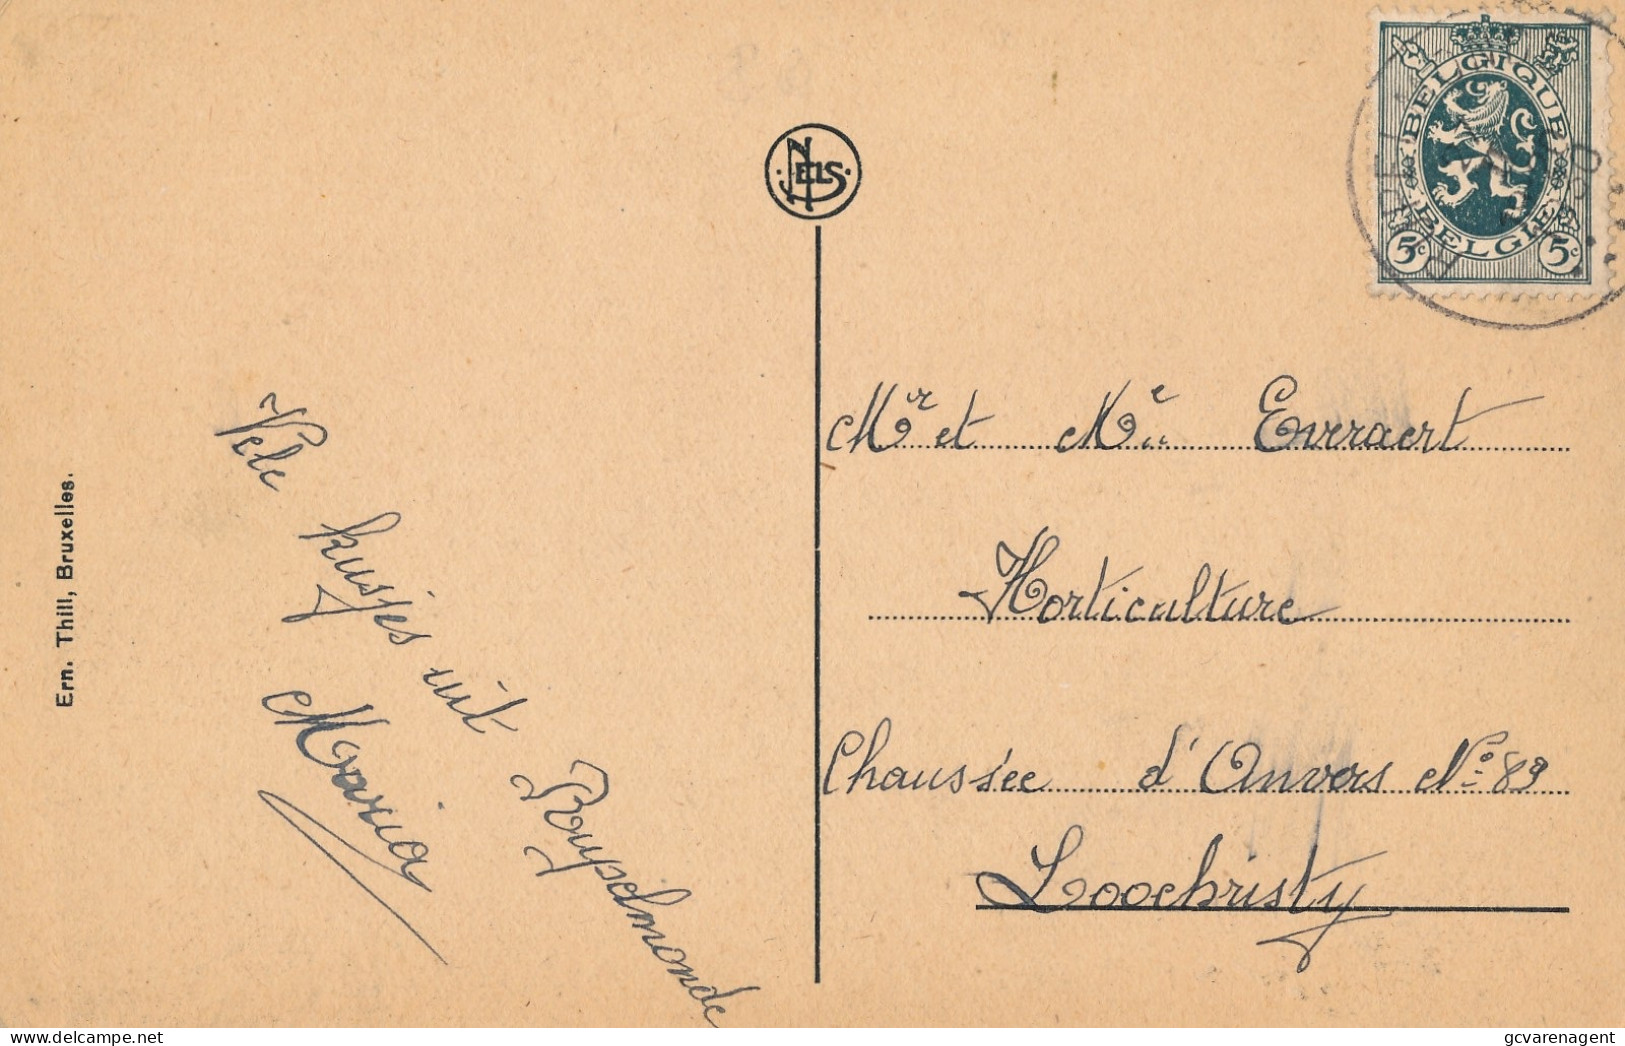 NELS
Ern. Thill, Bruxelles.
BELGIQUE
BELGIE
5c 5c
Vele kusjes uit Rupelmonde
Maria
Mr et Me Everaert
Horticulture
Chaussée d'Anvers No 89
Loochristy
delcampe.net
gcvarenagent